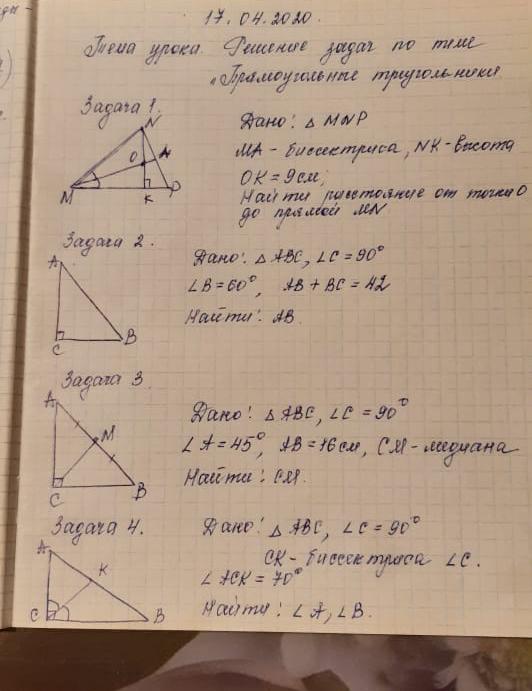 17.04.2020.
Тема урока. Решение задач по теме
"Прямоугольные треугольники
Задача 1.
N
O
A
M
K
P
Дано: △ MNP
MA - биссектриса, NK - высота
OK = 9 см;
Найти расстояние от точки O
до прямой MN
Задача 2.
A
C
B
Дано: △ ABC, ∠C = 90°
∠B = 60°, AB + BC = 42
Найти: AB.
Задача 3
A
M
C
B
Дано: △ ABC, ∠C = 90°
∠A = 45°, AB = 16 см, CM - медиана
Найти: CM.
Задача 4.
A
K
C
B
Дано: △ ABC, ∠C = 90°
CK - биссектриса ∠C.
∠ACK = 70°
Найти: ∠A, ∠B.